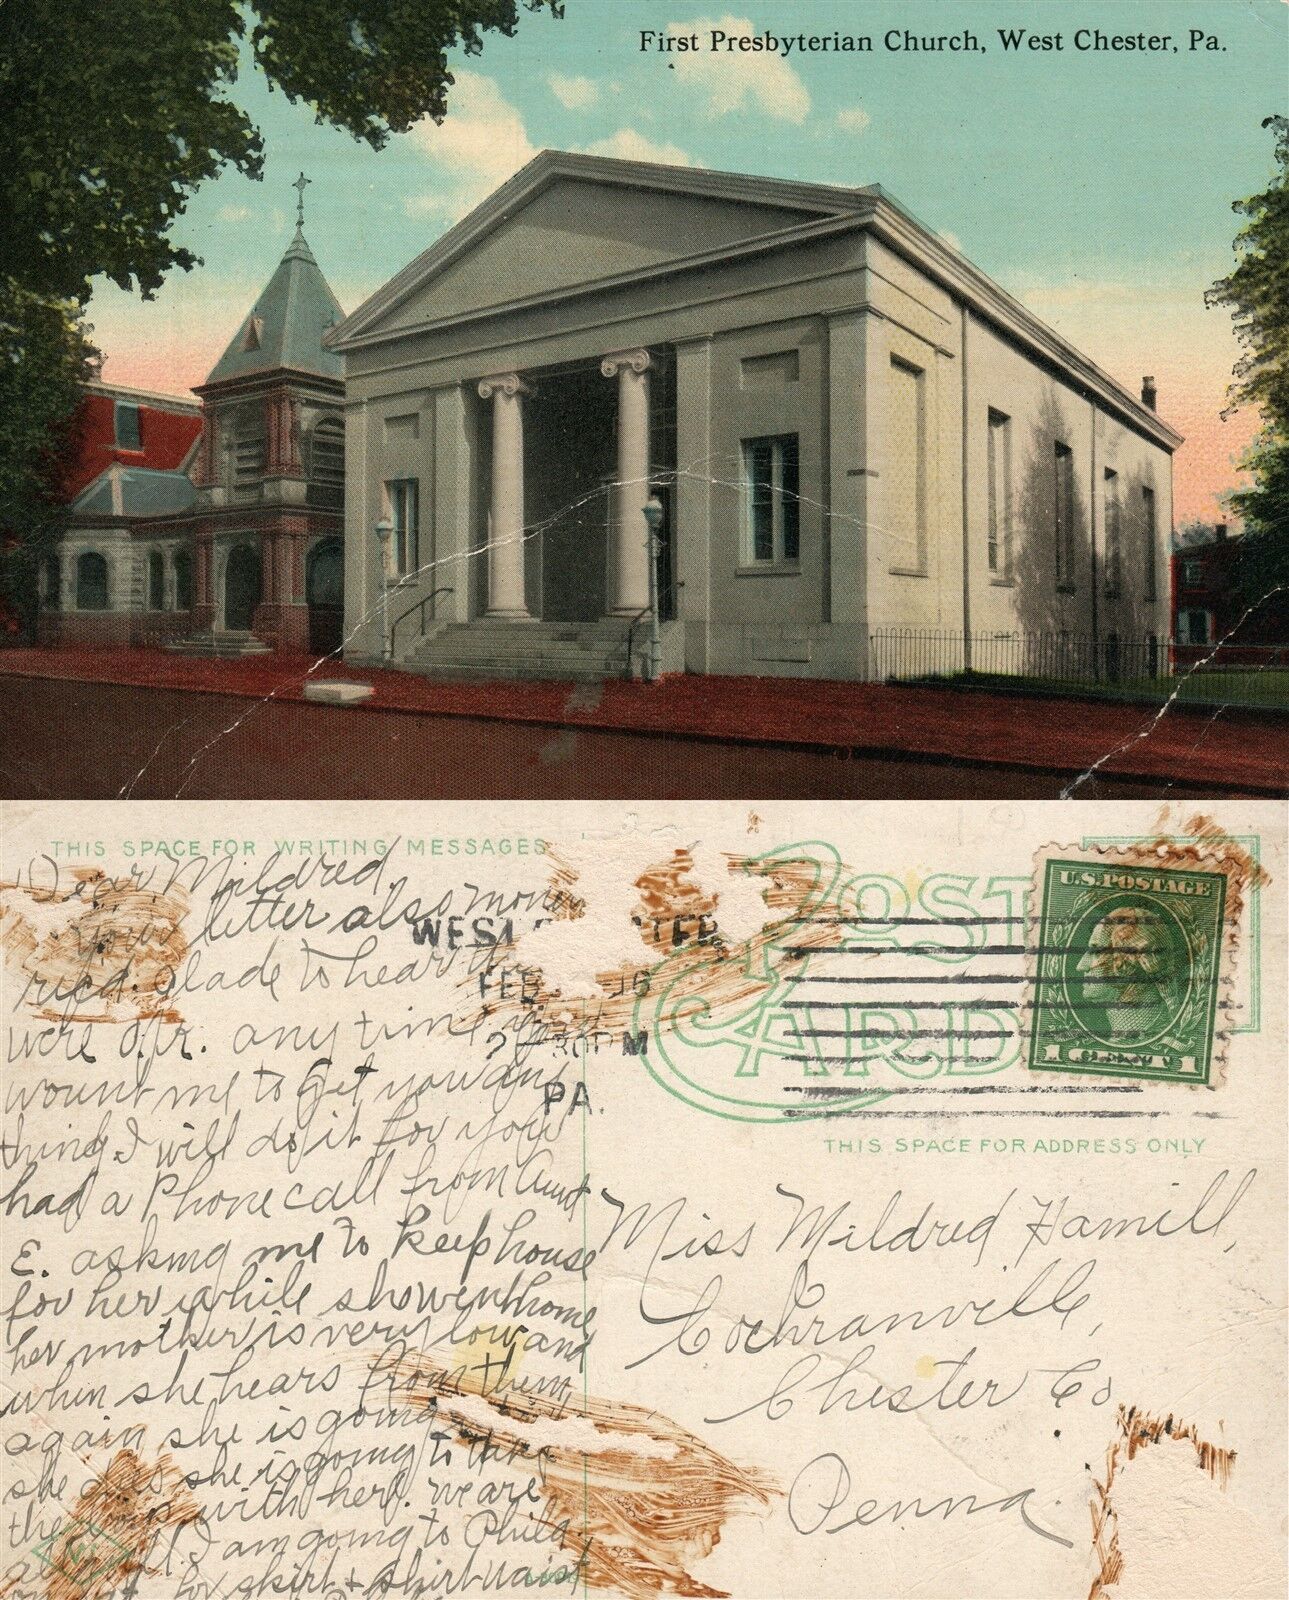 First Presbyterian Church, West Chester, Pa.
THIS SPACE FOR WRITING MESSAGES
Dear Mildred,
Your letter also money
rec'd. Glade to hear you
were O.K. any time you
wount me to get you any
thing I will do it for you
had a Phone call from Aunt
E. asking me to keep house
for her while she went home
her mother is very low and
when she hears from them
again she is going
she dies she is going to take
the with her. we are
all well I am going to Phila.
for skirt + shirt waist
WEST
FEB 16
30 PM
PA.
POST
CARD
U.S. POSTAGE
1 1
THIS SPACE FOR ADDRESS ONLY
Miss Mildred Hamill,
Cochranville,
Chester Co
Penna.